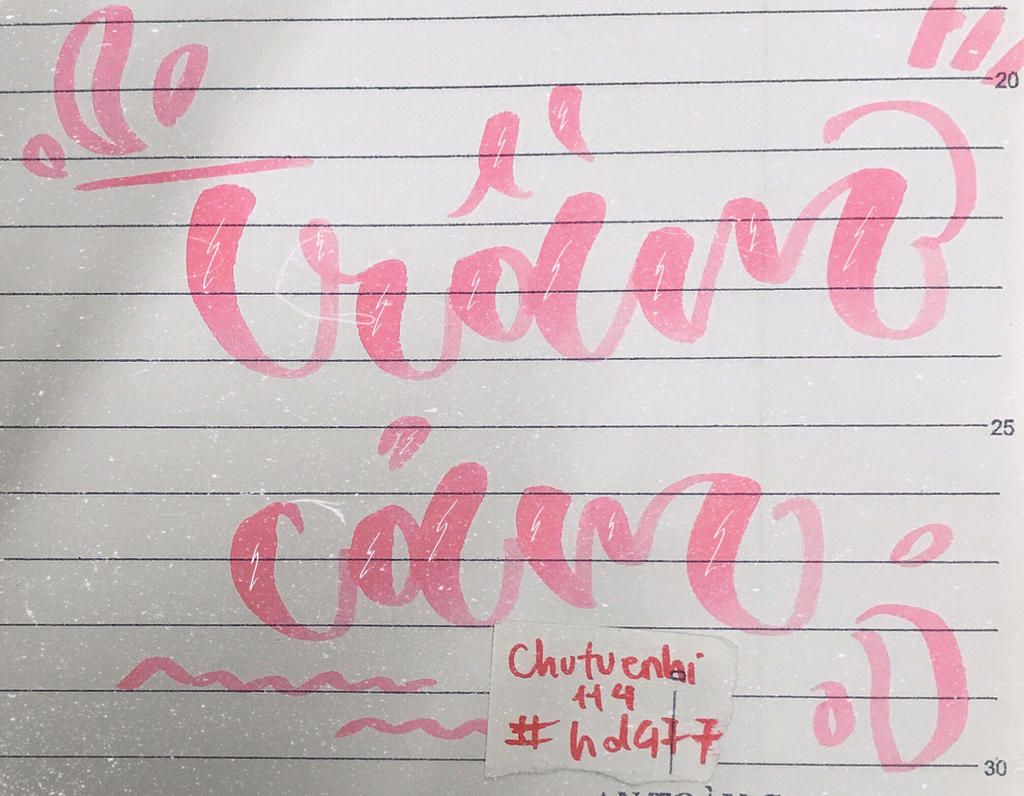 20
trầm
25
cảm
Chutuenhi
114
#hd477
30